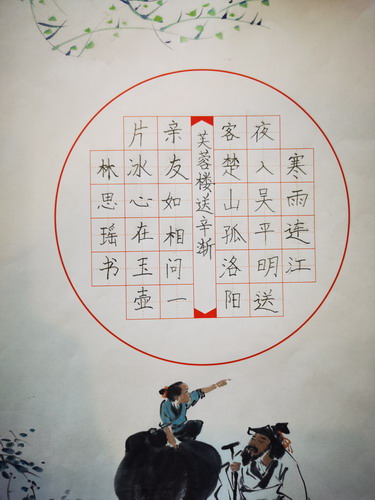 寒雨连江
夜入吴平明送
客楚山孤洛阳
芙蓉楼送辛渐
亲友如相问一
片冰心在玉壶
林思瑶书